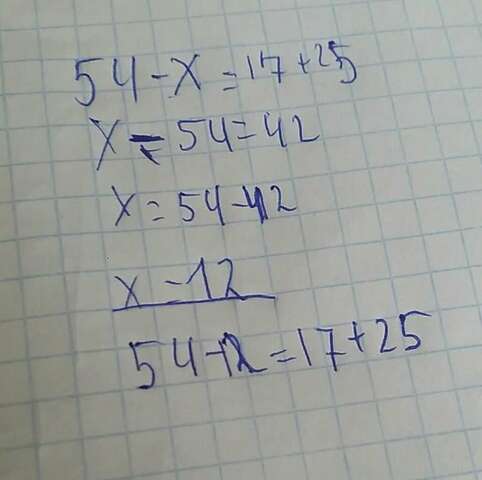 54-x=17+25
x=54=42
x=54-42
x=12
54-12=17+25